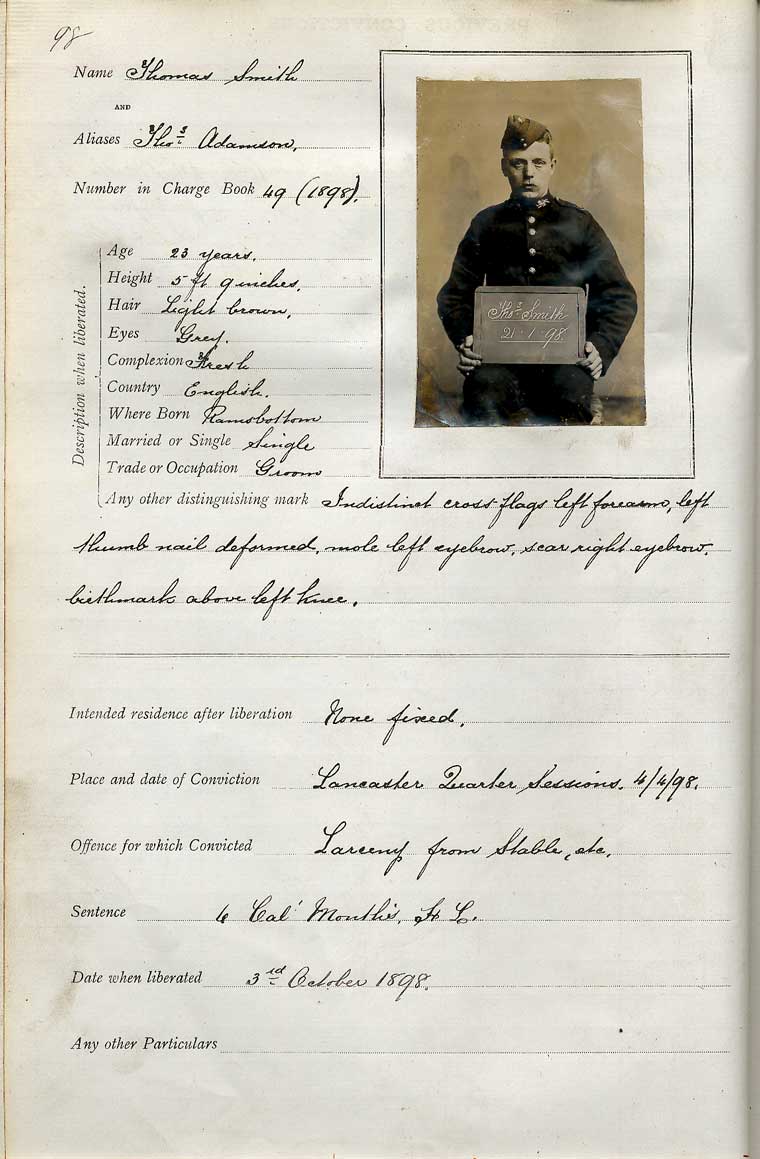 98
Name Thomas Smith
AND
Aliases Thos Adamson,
Number in Charge Book 49 (1898).
Description when liberated.
Age 23 years.
Height 5 ft 9 inches.
Hair Light brown,
Eyes Grey.
Complexion Fresh
Country English.
Where Born Ramsbottom
Married or Single Single
Trade or Occupation Groom
Any other distinguishing mark Indistinct cross flags left forearm, left
thumb nail deformed, mole left eyebrow, scar right eyebrow,
birthmark above left knee.
Thos Smith
21-1-98
Intended residence after liberation None fixed.
Place and date of Conviction Lancaster Quarter Sessions. 4/4/98.
Offence for which Convicted Larceny from Stable, etc.
Sentence 6 Cal' Months, H L.
Date when liberated 3rd October 1898.
Any other Particulars